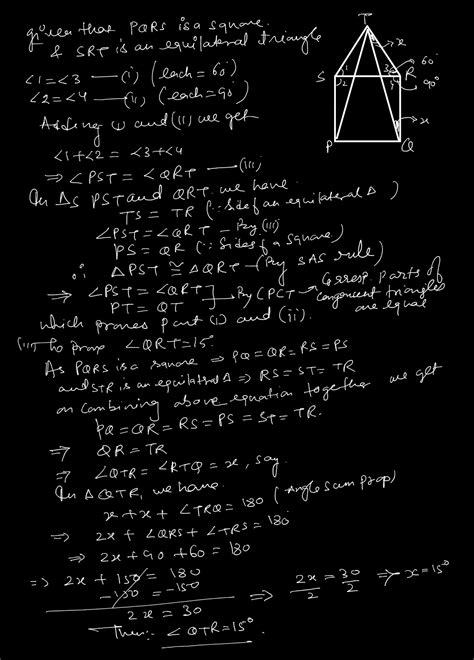 given that PQRS is a square.
& SRT is an equilateral triangle
∠1=∠3 —(i) (each = 60°)
∠2=∠4 —(ii) (each=90°)
Adding (i) and (ii) we get
∠1+∠2 = ∠3+∠4
⇒ ∠PST = ∠QRT —(iii)
In Δs PST and QRT, we have.
TS = TR (∵ Side of an equilateral Δ)
∠PST = ∠QRT — By (iii)
PS = QR (∵ Sides of a Square)
∴ ΔPST ≅ ΔQRT — (By SAS rule)
⇒ ∠PST = ∠QRT
PT = QT ] → By CPCT → Corresp. parts of congruent triangles are equal
which proves part (i) and (ii).
(iii) to prove ∠QRT=15°
As PQRS is a square ⇒ PQ = QR = RS = PS
and STR is an equilateral Δ ⇒ RS = ST = TR
on combining above equation together we get
PQ = QR = RS = PS = ST = TR.
⇒ QR = TR
⇒ ∠QTR = ∠RTQ = x, say.
In ΔQTR, we have.
x + x + ∠TRQ = 180 (Angle Sum prop)
⇒ 2x + ∠QRS + ∠TRS = 180°
⇒ 2x + 90 + 60 = 180
⇒ 2x + 150 = 180
-150 = -150
2x = 30 ⇒ 2x/2 = 30/2 ⇒ x = 15°
Then:- ∠QTR = 15°.
T
x
60°
S 1 3 R
2 4 90°
x
P Q